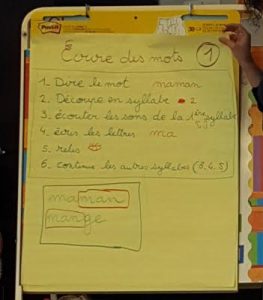 Post-it
Écrire des mots 1
1. Dire le mot maman
2. Découpe en syllabe 2
3. écouter les sons de la 1ère syllabe
4. écris les lettres ma
5. relis
6. continue les autres syllabes (3.4.5)
maman
mange